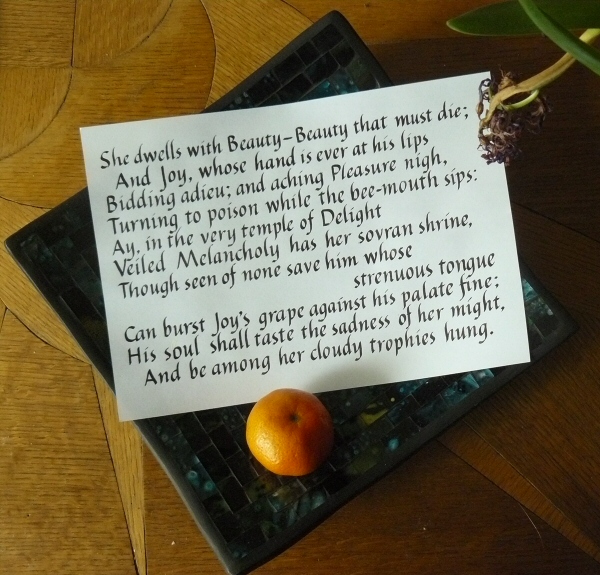 She dwells with Beauty–Beauty that must die;
And Joy, whose hand is ever at his lips
Bidding adieu; and aching Pleasure nigh,
Turning to poison while the bee-mouth sips:
Ay, in the very temple of Delight
Veiled Melancholy has her sovran shrine,
Though seen of none save him whose
strenuous tongue
Can burst Joy's grape against his palate fine;
His soul shall taste the sadness of her might,
And be among her cloudy trophies hung.